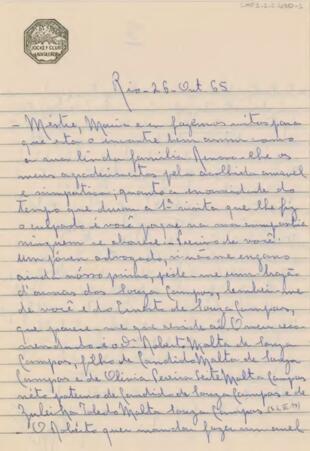 JOCKEY CLUB
BRASILEIRO
Rio - 26 - Out 65
- Mestre, Maria e eu fazemos votos para
que esta o encontre bem assim como
a sua linda família. Renovo-lhe os
meus agradecimentos pela acolhida amavel
e simpatica, quanto a enormidade do
tempo que durou a 1ª visita que lhe fiz
o culpado é você porque na sua companhia
ninguem se aborrece.
um jóven advogado, si não me engano
ainda nósso primo, péde-me um brazão
d'armas dos Souza Campos, lembrei-me
de você e do Ernesto de Souza Campos,
que parece-me que ainda O meu reco-
mendado é o Dr Robert Malta de Souza
Campos, filho de Candido Malta de Souza
Campos e de Olivia Leite Malta Campos
néto paterno de Candido de Souza Campos e de
Zuleika Toledo Malta Souza Campos
- O Robérto quer mandar fazer um anel